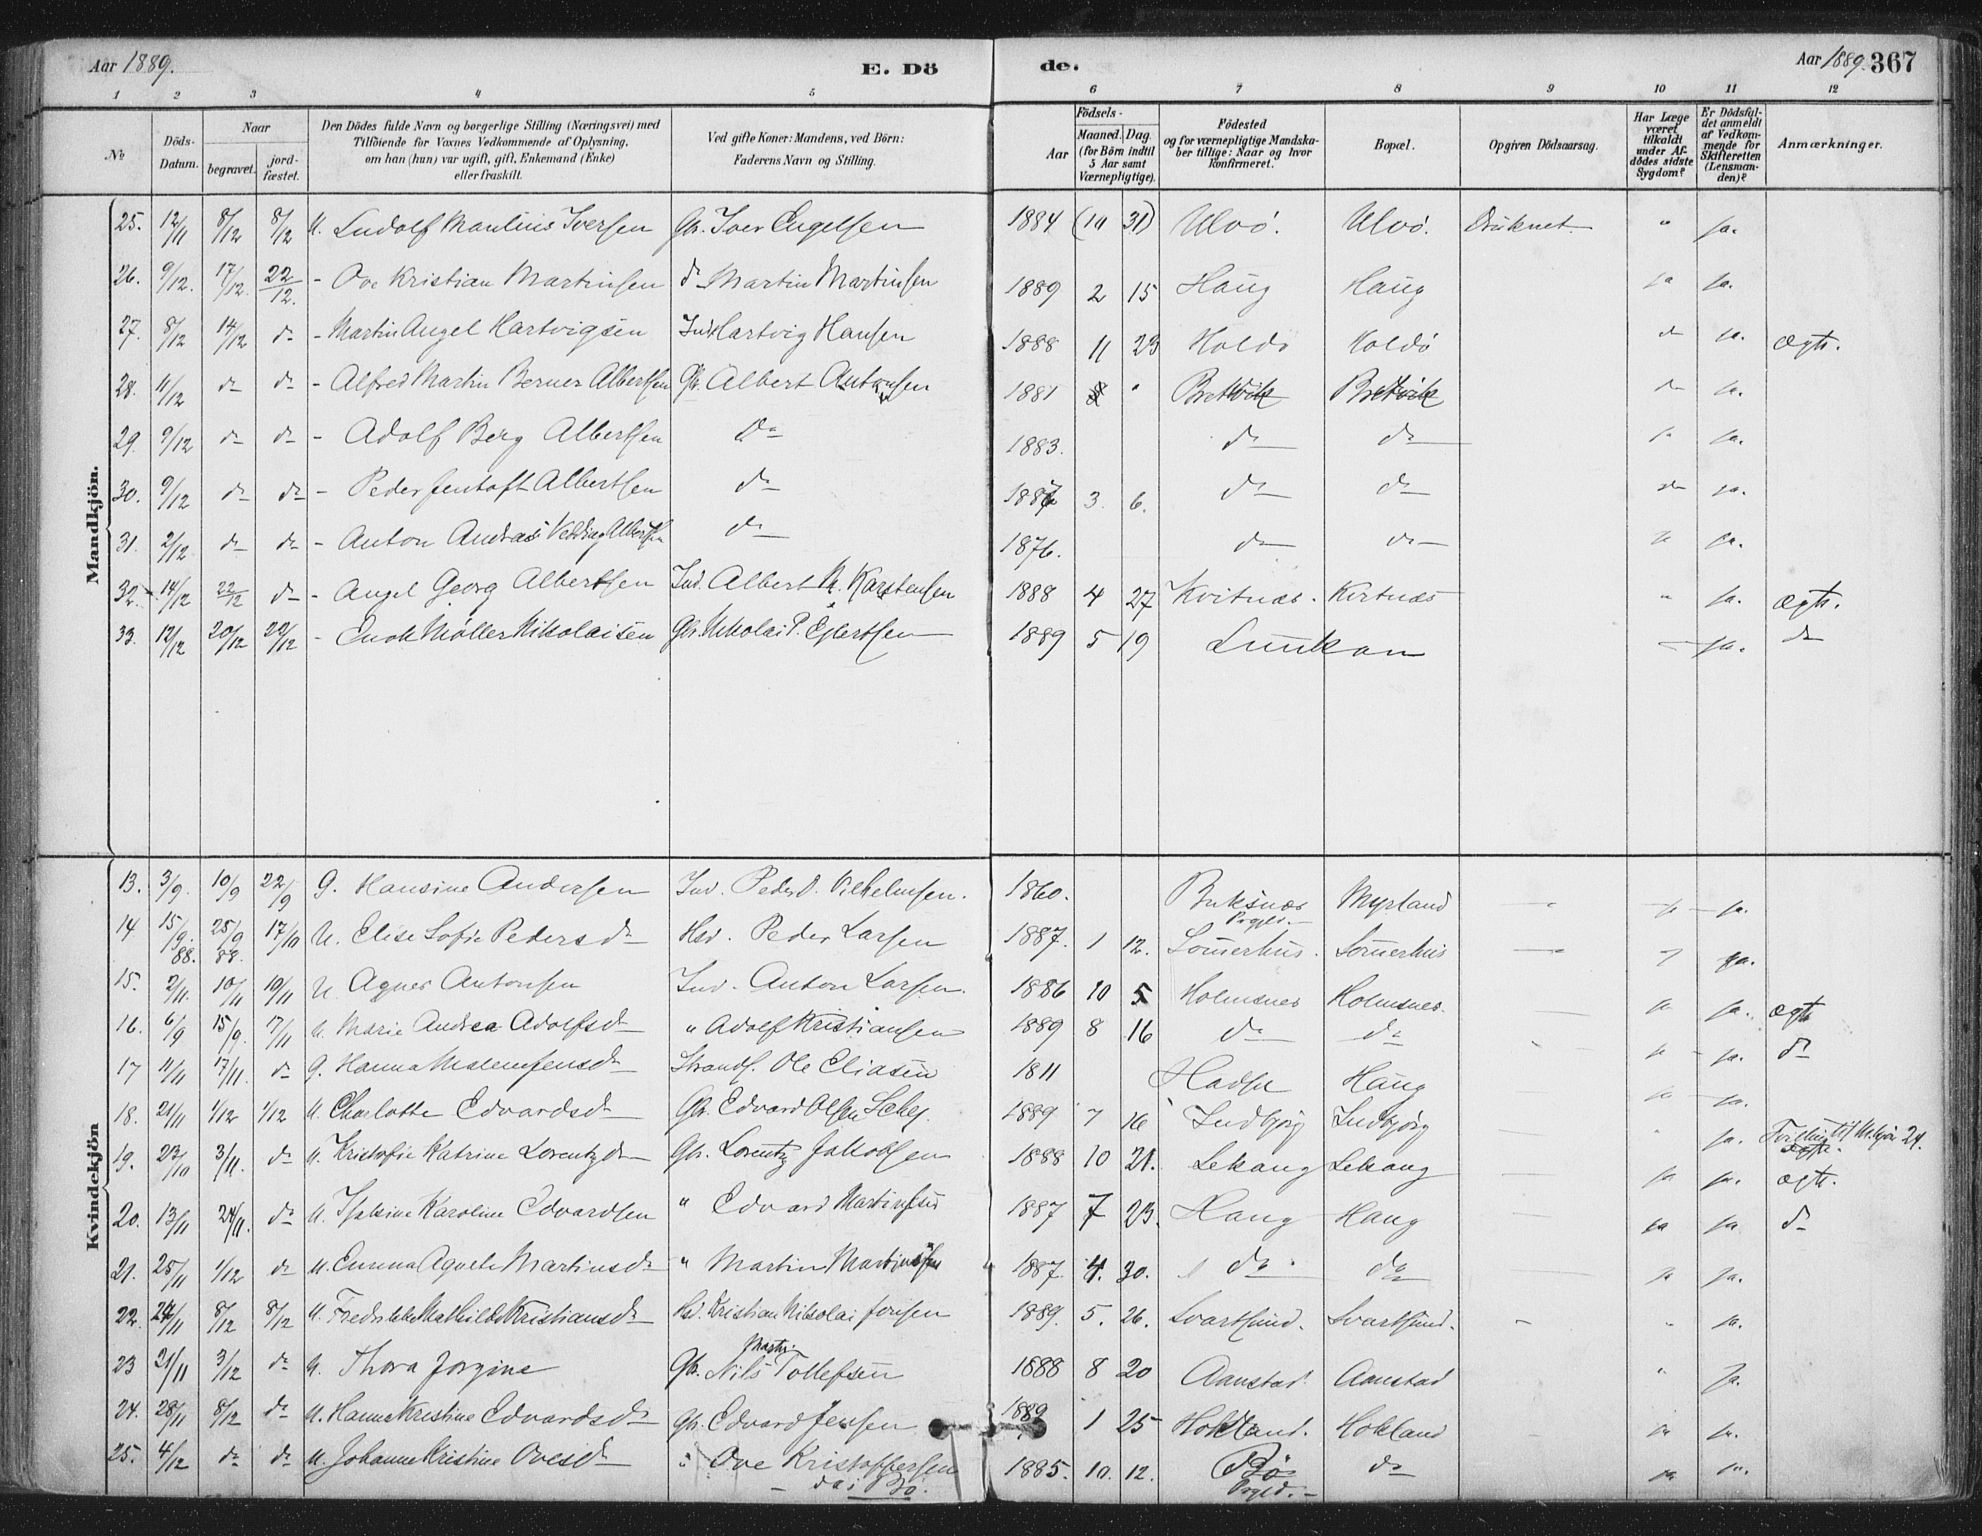 Aar 1889. E. Dö de. Aar 1889. 367
1 2 3 4 5 6 7 8 9 10 11 12
№ Döds-Datum. Naar begravet. jordfæstet. Den Dödes fulde Navn og borgerlige Stilling (Næringsvei) med Tilföiende for Voxnes Vedkommende af Oplysning, om han (hun) var ugift, gift, Enkemand (Enke) eller fraskilt. Ved gifte Koner: Mandens, ved Börn: Faderens Navn og Stilling. Födsels- Aar Maaned. Dag. (for Börn indtil 5 Aar samt Værnepligtige). Födested og for værnepligtige Mandskaber tillige: Naar og hvor konfirmeret. Bopæl. Opgiven Dödsaarsag. Har Læge været tilkaldt under Afdödes sidste Sygdom? Er Dödsfaldet anmeldt af Vedkommende for Skifteretten (Lensmanden)? Anmærkninger.
Mandkjön.
25. 12/11 8/12 8/12 U. Ludolf Mantinus Iversen Gbr. Iver Engelsen 1884 (10 31) Ulvö. Ulvö. Druknet. " ja.
26. 9/12. 17/12. 22/12. - Ove Kristian Martinsen do Martin Martinsen 1889 2 15 Haug Haug ja ja.
27. 8/12 14/12 do - Martin Angel Hartvigsen Ind. Hartvig Hansen 1888 11 23 Holdö Holdö do ja. ægte.
28. 11/12 do do - Alfred Martin Berner Albertsen Gbr. Albert Antonsen 1881 " Brettvik Brettvik do ja.
29. 9/12 do do - Adolf Berg Albertsen do 1883. do do ja ja.
30. 9/12 do do - Peder Jentoft Albertsen do 1887 3. 6. do do do ja.
31. 2/12 do do - Anton Andreas Vedding Albertsen do 1876. do do ja ja.
32. 14/12 22/12 do - Angel Georg Albertsen Ind. Albert N. Karstensen 1888 4 27 Kvitnæs. Kvitnæs " ja. ægte.
33. 12/12 20/12 22/12 - Enok Møller Nikolaisen Gbr. Nikolai P. Ejlertsen 1889 5 19 Lunkan - ja. do
Kvindekjön
13. 3/9. 10/9 22/9 G. Hansine Andersen Ind. Peder D. Vilhelmsen. 1860. Buksnæs Prgjld. Myrland ja ja.
14 15/9 88. 25/9 88. 17/10 U. Elise Sofie Pedersdr Hsd. Peder Larsen 1887. 1 12. Somerhus. Somerhus ja.
15. 2/11. 10/11 10/11 U Agnes Antonsen Ind. Anton Larsen. 1886 10 5 Holmsnes Holmsnes. ja ja. ægte
16. 6/9 15/9. 17/11 U. Marie Andrea Adolfsdr " Adolf Kristiansen 1889 8 16 do do ja ja. do
17 11/11 17/11. do G. Hanna Malene Jensdr Strands. Ole Eliasen 1811 Hadsel Haug ja ja.
18. 21/11 1/12 1/12 U. Charlotte Edvardsdr Gbr. Edvard Olsen 1889 7 16 Indbjörg Indbjörg " ja.
19. 23/10 3/11. do U. Kristofie Katrine Lorentzdr Gbr. Lorentz Jakobsen 1888 10 21. Lekang Lekang ja ja. ægte.
20. 13/11 24/11. do U. Karoline Edvardsen " Edvard Martinsen 1887 7 23. Haug Haug ja ja do
21. 25/11 1/12 do U. Emma Agnete Martinsdr " Martin Martinsen 1887. 4. 30. do do ja ja.
22. 24/11 8/12 8/12 U. Fredrikke Mathilde Kristiansdr Hsd. Kristian Nikolai Jensen 1889. 5. 26. Svartsund. Svartsund. - " ja.
23 21/11 3/12 do U. Thora Jorgine Gbr. Nils Martin Tollefsen 1888 8 20 Aanstad Aanstad " ja.
24. 28/11 8/12 do U. Hanna Kristine Edvardsdr Gbr. Edvard Jensen 1889 1 25 Hokland. Hokland ja ja.
25. 4/12 do do U. Johanne Kristine Ovesdr " Ove Kristoffersen 1885. 10. 12. Bö Prgjld. do ja ja.